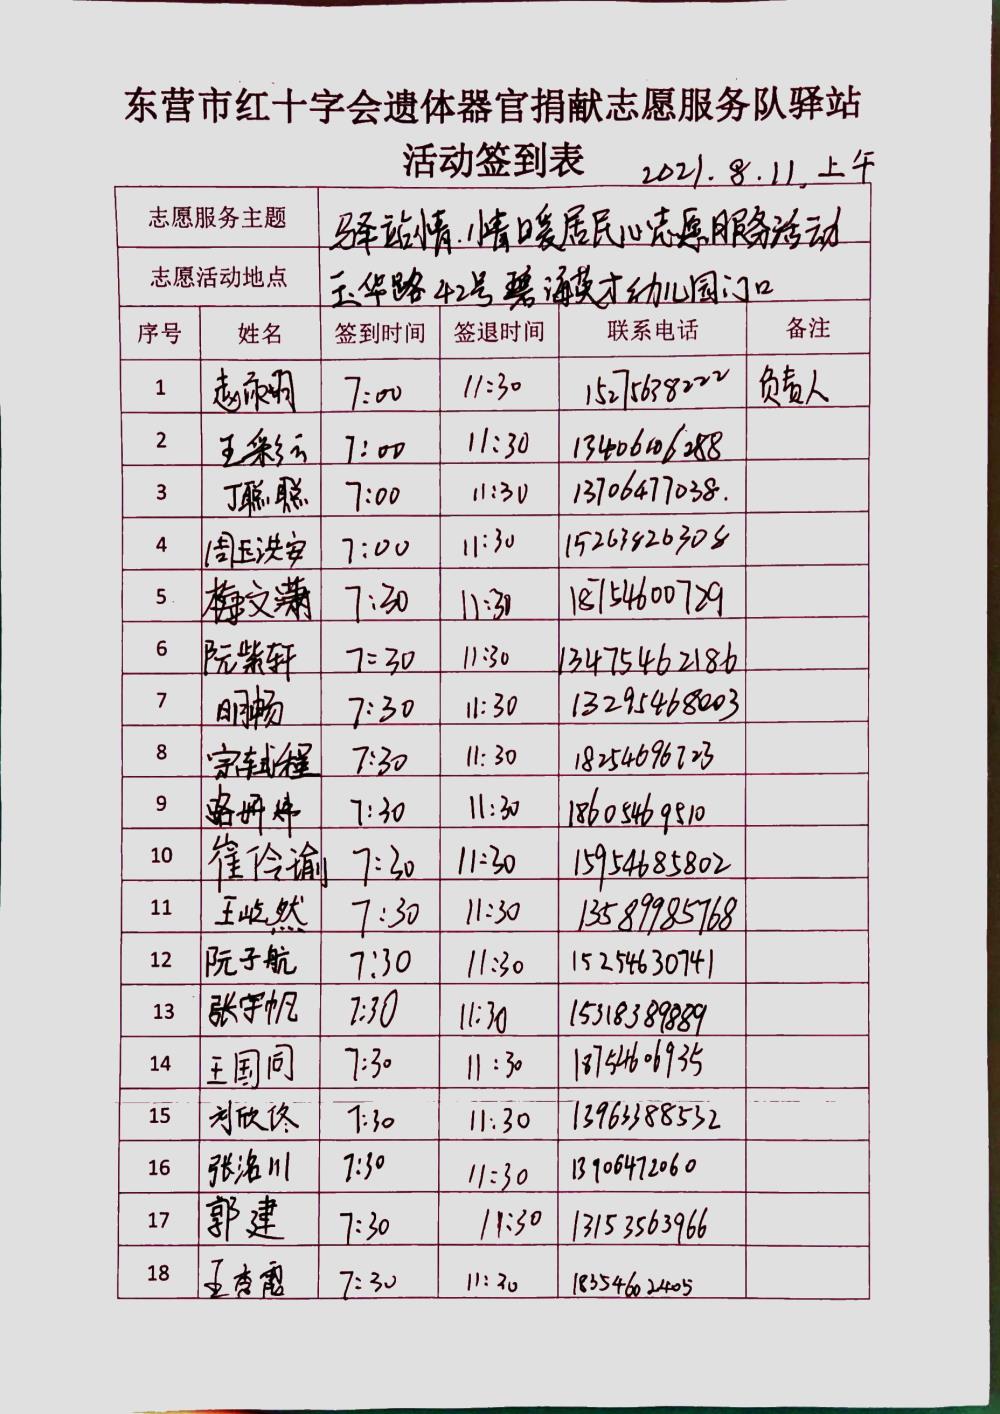 东营市红十字会遗体器官捐献志愿服务队驿站
活动签到表
2021.8.11.上午
志愿服务主题 驿站情.情暖居民心志愿服务活动
志愿活动地点 玉华路42号碧海英才幼儿园门口
序号 姓名 签到时间 签退时间 联系电话 备注
1 7:00 11:30 15275638222 负责人
2 王彩云 7:00 11:30 13406106288
3 丁聪聪 7:00 11:30 13706477038.
4 7:00 11:30 15263826308
5 梅文潇 7:30 11:30 18754600729
6 阮紫轩 7:30 11:30 13475462186
7 明畅 7:30 11:30 13295468003
8 宗轼程 7:30 11:30 18254696723
9 路妍炜 7:30 11:30 18605469510
10 崔伶瑜 7:30 11:30 15954685802
11 王屹然 7:30 11:30 13589985768
12 阮子航 7:30 11:30 15254630741
13 张宇帆 7:30 11:30 15318389889
14 王国同 7:30 11:30 18754606935
15 刘欣佟 7:30 11:30 13963388532
16 张洺川 7:30 11:30 13906472060
17 郭建 7:30 11:30 13153563966
18 王杏霞 7:30 11:30 18354602405